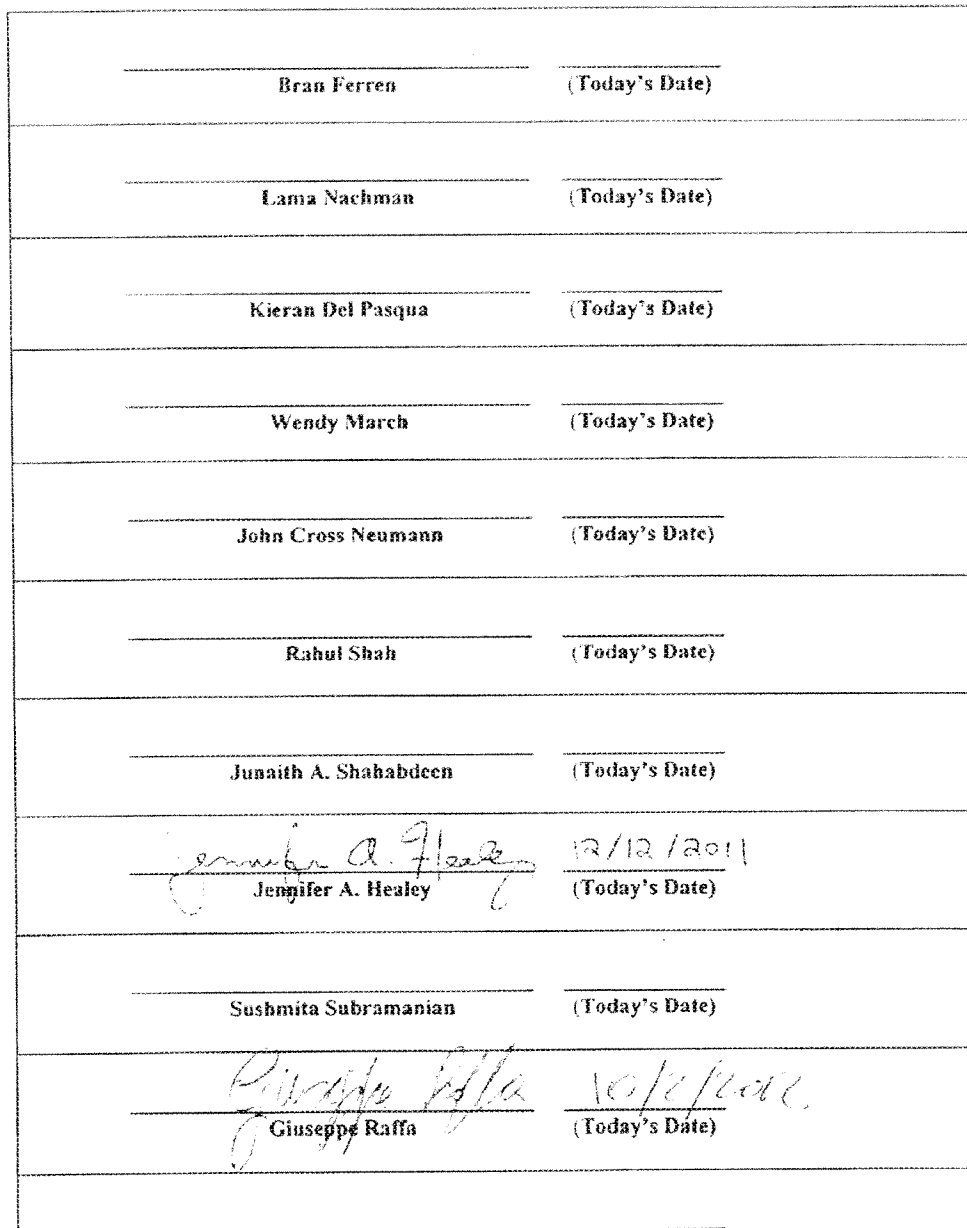 Bran Ferren (Today's Date)
Lama Nachman (Today's Date)
Kieran Del Pasqua (Today's Date)
Wendy March (Today's Date)
John Cross Neumann (Today's Date)
Rahul Shah (Today's Date)
Junaith A. Shahabdeen (Today's Date)
Jennifer A. Healey 12/12/2011
Jennifer A. Healey (Today's Date)
Sushmita Subramanian (Today's Date)
Giuseppe Raffa
Giuseppe Raffa (Today's Date)